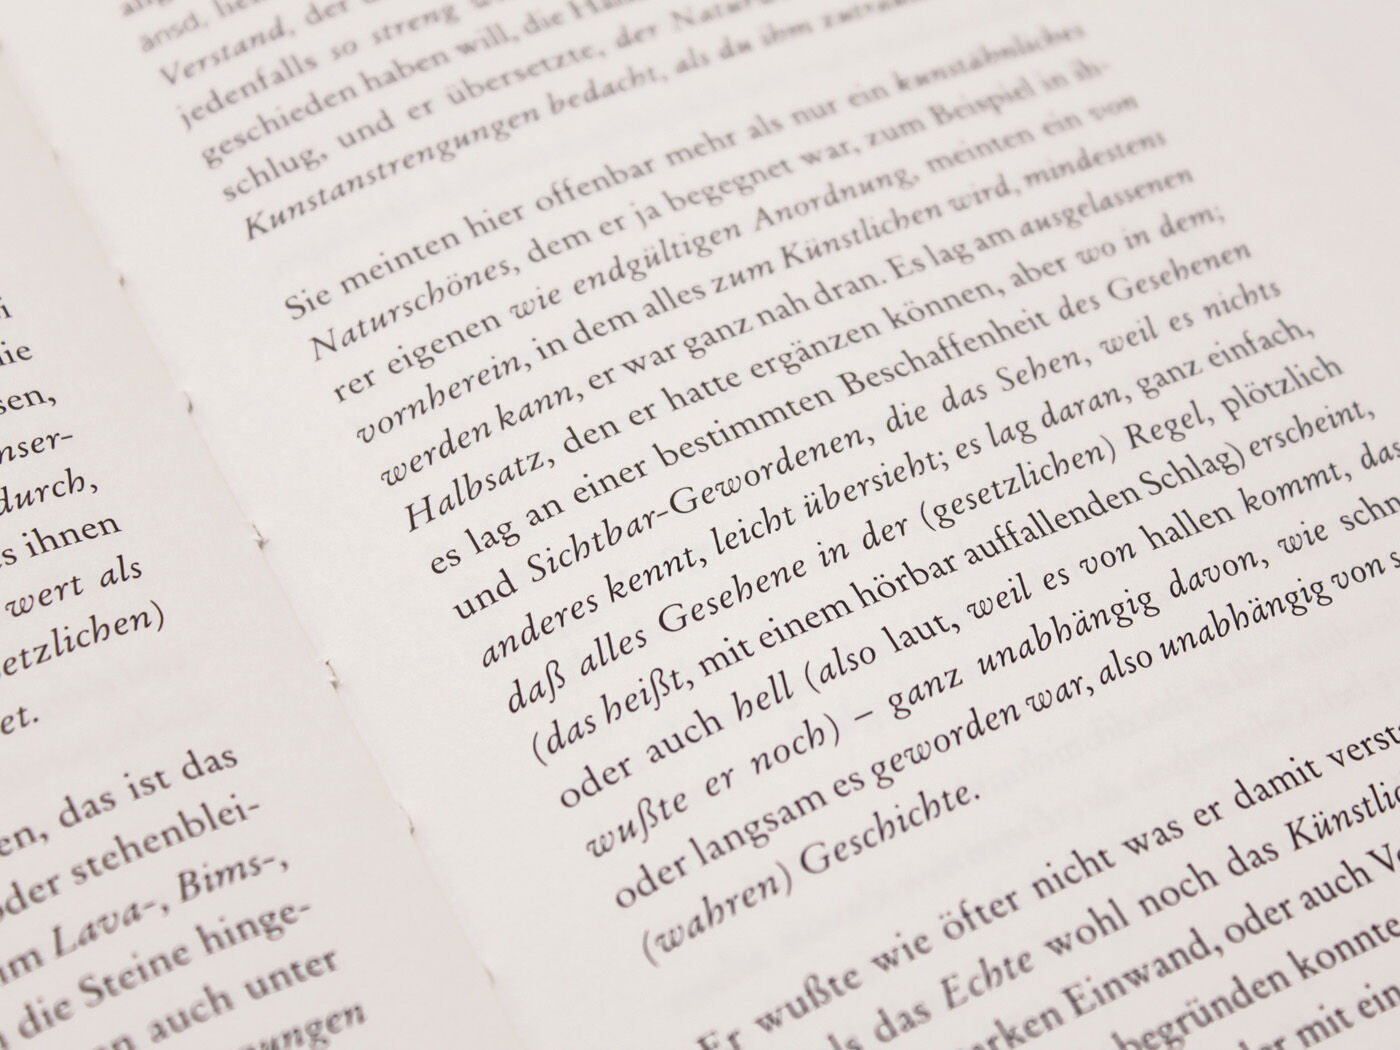 i
ie
sen,
nser-
durch,
s ihnen
wert als
etzlichen)
et.
en, das ist das
oder stehenblei-
im Lava-, Bims-,
die Steine hinge-
en auch unter
änsd,
Verstand, der
jedenfalls so streng
geschieden haben will, die
schlug, und er übersetzte, der
Kunstanstrengungen bedacht, als du ihm
Sie meinten hier offenbar mehr als nur ein kunstähnliches
Naturschönes, dem er ja begegnet war, zum Beispiel in ih-
rer eigenen wie endgültigen Anordnung, meinten ein von
vornherein, in dem alles zum Künstlichen wird, mindestens
werden kann, er war ganz nah dran. Es lag am ausgelassenen
Halbsatz, den er hatte ergänzen können, aber wo in dem;
es lag an einer bestimmten Beschaffenheit des Gesehenen
und Sichtbar-Gewordenen, die das Sehen, weil es nichts
anderes kennt, leicht übersieht; es lag daran, ganz einfach,
daß alles Gesehene in der (gesetzlichen) Regel, plötzlich
(das heißt, mit einem hörbar auffallenden Schlag) erscheint,
oder auch hell (also laut, weil es von hallen kommt, das
wußte er noch) – ganz unabhängig davon, wie schn
oder langsam es geworden war, also unabhängig von s
(wahren) Geschichte.
Er wußte wie öfter nicht was er damit verst
ls das Echte wohl noch das Künstlic
arken Einwand, oder auch V
begründen konnte
er mit ein